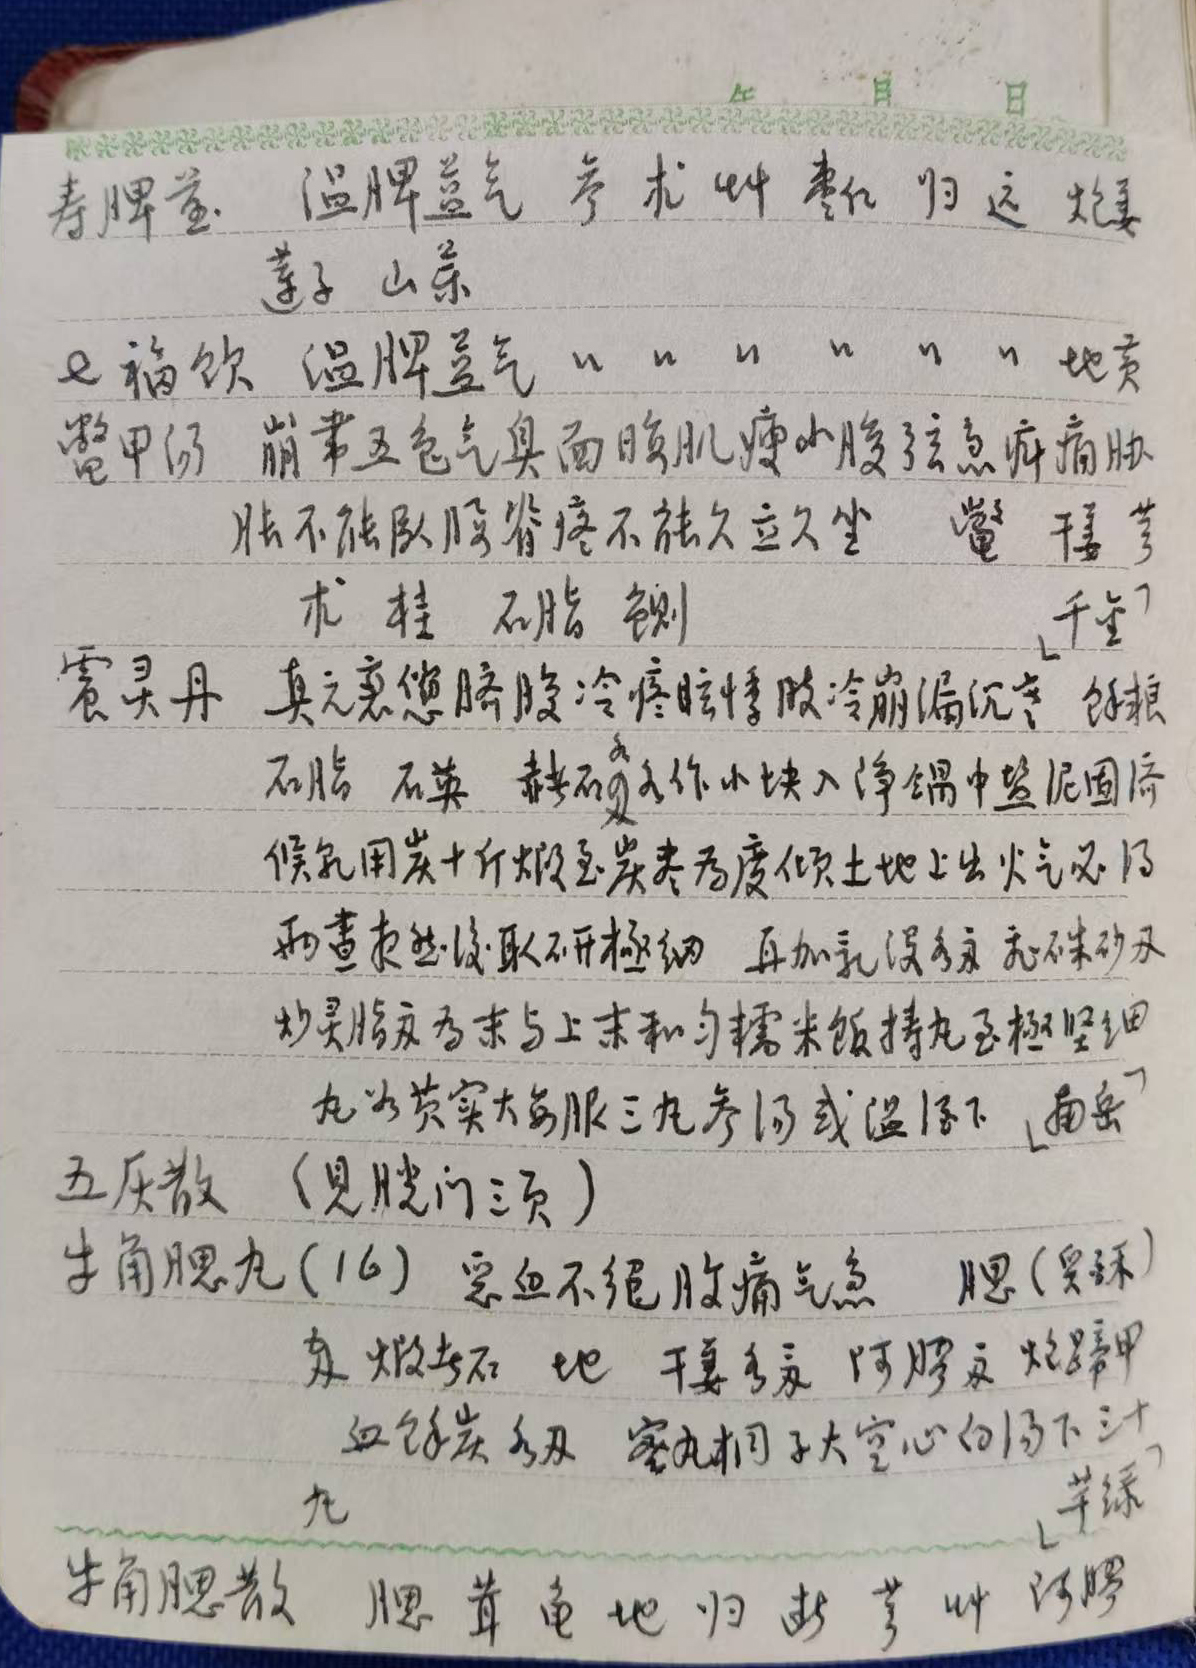 年 月 日
寿脾煎 温脾益气 参 术 草 枣仁 归 远 炮姜
莲子 山药
七福饮 温脾益气 〃 〃 〃 〃 〃 〃 地黄
鳖甲汤 崩带五色气臭面 肌瘦小腹弦急痹痛肋
胀不能卧股脊疼不能久立久坐 鳖 干姜 芎
术 桂 石脂 侧
「千金」
震灵丹 真元衰惫脐腹冷疼眩悸肢冷崩漏沉寒 余粮
石脂 石英 赭石各 作小块入净锅中盐泥固济
候乾用炭十斤煅至炭尽为度倾土地上出火气必得
两昼夜然後取研極细 再加乳没各 朱砂
炒灵脂 为末与上末和匀糯米饭捣丸至極坚细
丸如芡实大每服三丸参汤或温酒下 「南岳」
五灰散 (见胱门三页)
牛角腮丸(16) 恶血不绝腹痛气急 腮(炙酥)
煅赭石 地 干姜各 阿膠 炮蹄甲
血余炭各 蜜丸桐子大空心白汤下三十
丸 「 绿」
牛角腮散 腮 茸 龟 地 归 断 芎 草 阿膠